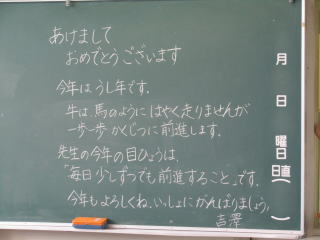 あけまして
おめでとうございます
今年はうし年です.
牛は、馬のようにはやく走りませんが
一歩一歩かくじつに前進します.
先生の今年の目ひょうは、
「毎日少しずつでも前進すること」です.
今年もよろしくね. いっしょにがんばりましょう.
吉澤
月
日
曜日
日直
(
)